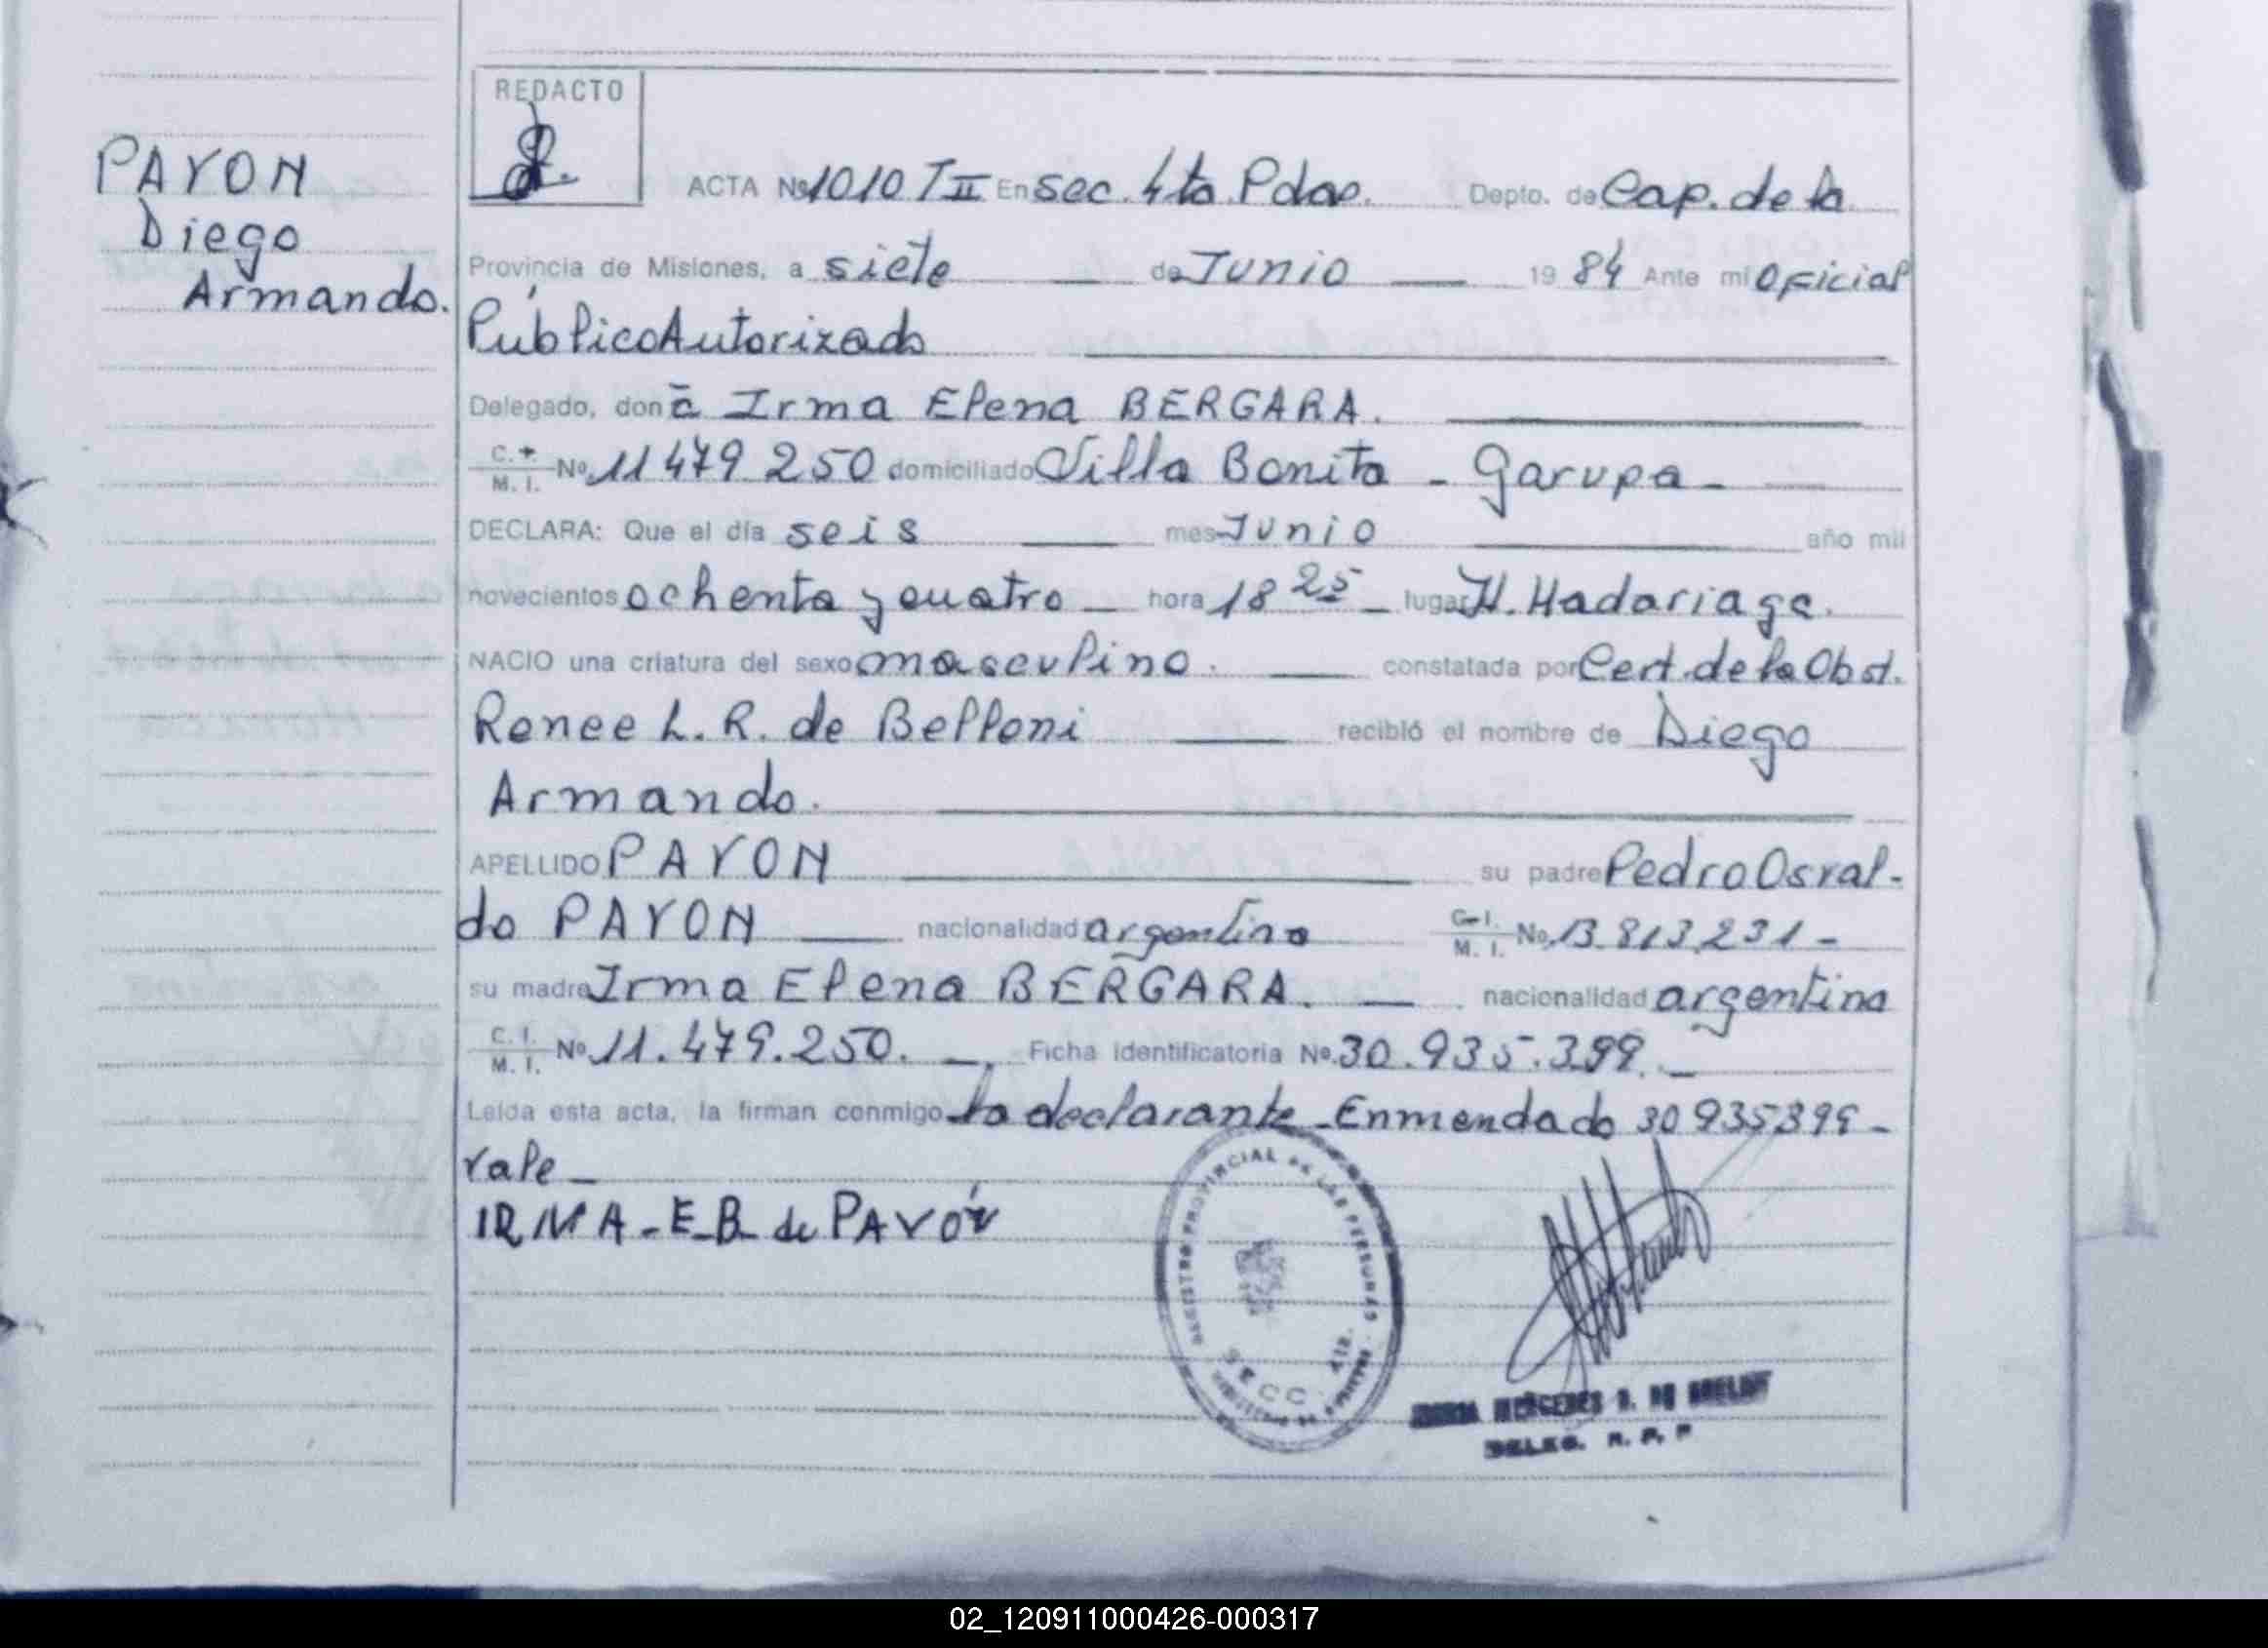 REDACTO
PAVON
Diego
Armando.
ACTA Nº 1010 T II En Sec. 4ta Pdas. Depto. de Cap. de la
Provincia de Misiones, a siete de Junio 19 84 Ante mi Oficial
Público Autorizado
Delegado, don ã Irma Elena BERGARA.
C. I. M. I. Nº 11 479 250 domiciliado Villa Bonita - Garupa -
DECLARA: Que el día seis mes Junio año mil
novecientos ochenta y cuatro - hora 18 25 - lugar H. Madariaga.
NACIO una criatura del sexo masculino. constatada por Cert. de la Obst.
Renee L. R. de Belloni recibió el nombre de Diego
Armando.
APELLIDO PAVON su padre Pedro Osval-
do PAVON nacionalidad argentino C. I. M. I. Nº 13.813.231 -
su madre Irma Elena BERGARA. nacionalidad argentina
C. I. M. I. Nº 11.479.250. Ficha Identificatoria Nº 30.935.399. -
Leída esta acta, la firman conmigo la declarante - Enmendado 30 935399 -
vale -
IRMA - E - B - de PAVÓN
REGISTRO PROVINCIAL DE LAS PERSONAS
SECC. 4ta.
MERCEDES
DELEG. R. P. P
02_120911000426-000317